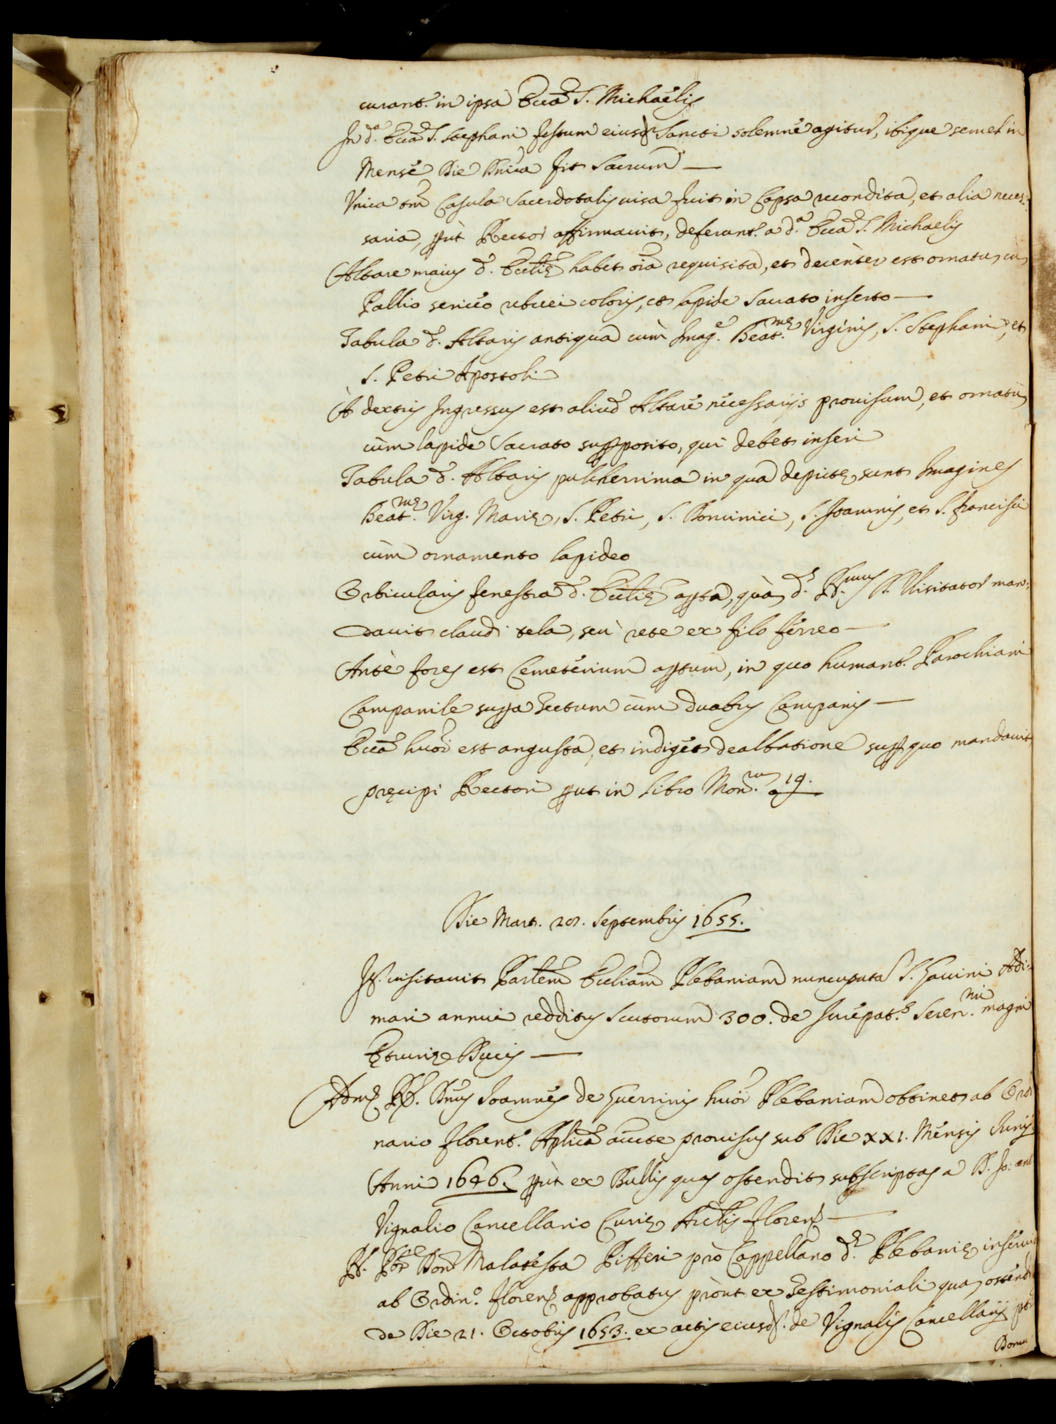 curant.r in ipsa Eccā S. Michaelis
In d.a Eccā S. Stephani festum eiusd. Sancti solemne agitur, ibique semel in
Mense Die Dnica fit Sacrum —
Unica tm̄ Casula Sacerdotalis visa fuit in Capsa recondita, et alia neces-
saria, put Rector affirmavit, deferunt.r a d.a Eccā S. Michaelis
Altare maius d. Ecclię habet oīa requisita, et decenter est ornatum cū
Pallio serico rubei coloris, et lapide Sacrato inserto —
Tabula d. Altaris antiqua cum Imag.e Beat.mę Virginis, S. Stephani, et
S. Petri Apostoli
A dextris Ingressus est aliud Altare necessarijs provisum, et ornatū
cum lapide Sacrato supposito, qui debet inseri
Tabula d. Altaris pulcherrima in qua depictę sunt Imagines
Beat.mę Virg. Marię, S. Petri, S. Dominici, S. Joannis, et S. Francisci
cum ornamento lapideo
Orbicularis fenestra d. Ecclię apta, quā d. Ill.mus D. Visitator man-
davit claudi tela, seu rete ex filo ferreo —
Ante fores est Cemeterium aptum, in quo humant.r Parochiani
Campanile supra tectum cum duabus Campanis —
Eccā huōi est angusta, et indiget dealbatione sup. quo mandavit
pręcipi Rectori put in libro Mon.rum 19.
Die Mart. 20. Septembris 1655.
Id. visitavit Parlem Eccliam Plebaniam nuncupatā S. Gavini Adi-
mari annui redditus Scutorum 300. de Jurepat.s Seren.mi magni
Etrurię Ducis —
Adm̄ R.P. Dn̄s Joannes de Guerrinis huōi Plebaniam obtinet ab Ordi
nario Florent.o Aplicā aucte provisus sub Die XXI. Mensis Junij
Anni 1646. put ex Bullis quas ostendit subscriptas a D. Jo: ant
Vignalio Cancellario Curię Archilis Florenę —
Malatesta Pifferi pro Cappellano d.ę Plebanię inservit
ab Ordin.o Florenę approbatus prout ex Testimoniali quam ostendit
de Die 21. Octobris 1653. ex actis eiusd. de Vignalis Cancellarij
Domus